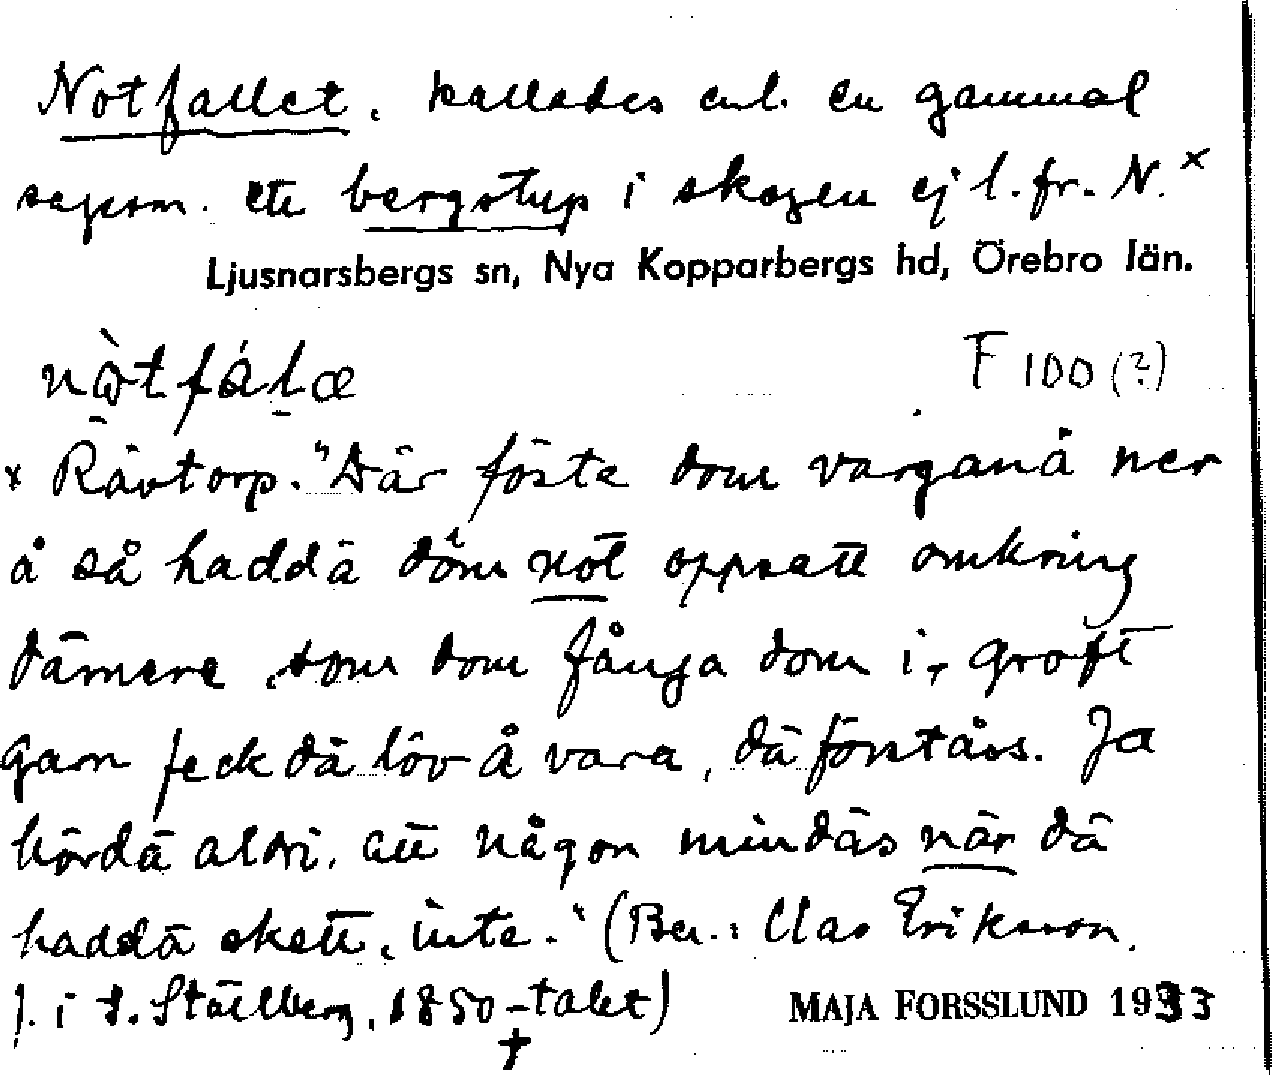 Notfallet, kallades enl. en gammal
sagesm. ett bergstup i skogen ej l. fr. N.×
Ljusnarsbergs sn, Nya Kopparbergs hd, Örebro län.
F 100 (?)
× Rävtorp. "Där föste dom varganå ner
å så haddä döm nöt oppsatt omkring
därnere, som dom fånga dom i, groft
garn feck dä löv å vara, dä förståss. Ja
hördä aldri, att någon mindäs när dä
haddä skett, inte." (Ber.: Clas Eriksson,
f. i St. Ställberg, 1850-talet)
†
MAJA FORSSLUND 1933